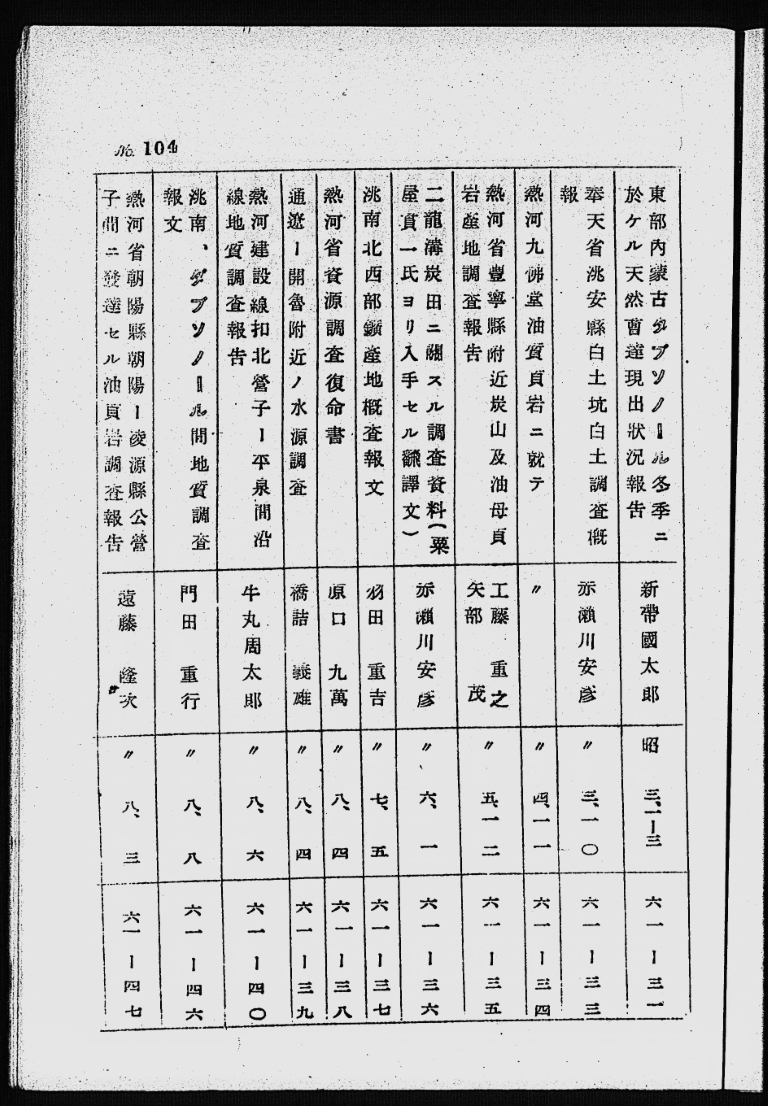 No. 104
東部內蒙古タブソノール冬季ニ
於ケル天然曹達現出狀況報告
新帶國太郎
昭 三、一―三
六一―三一
奉天省洮安縣白土坑白土調査槪
報
赤瀨川安彥
〃 三、一〇
六一―三三
熱河九佛堂油質頁岩ニ就テ
〃
〃 四、一一
六一―三四
熱河省豐寧縣附近炭山及油母頁
岩產地調査報告
工藤重之
矢部茂
〃 五、一二
六一―三五
二龍溝炭田ニ關スル調査資料(粟
屋貢一氏ヨリ入手セル飜譯文)
赤瀨川安彥
〃 六、一
六一―三六
洮南北西部鑛產地槪査報文
羽田重吉
〃 七、五
六一―三七
熱河省資源調査復命書
原口九萬
〃 八、四
六一―三八
通遼ー開魯附近ノ水源調査
橋詰義雄
〃 八、四
六一―三九
熱河建設線扣北營子ー平泉間沿
線地質調査報告
牛丸周太郎
〃 八、六
六一―四〇
洮南、タブソノール間地質調査
報文
門田重行
〃 八、八
六一―四六
熱河省朝陽縣朝陽ー凌源縣公營
子間ニ發達セル油頁岩調査報告
遠藤隆次
〃 八、三
六一―四七